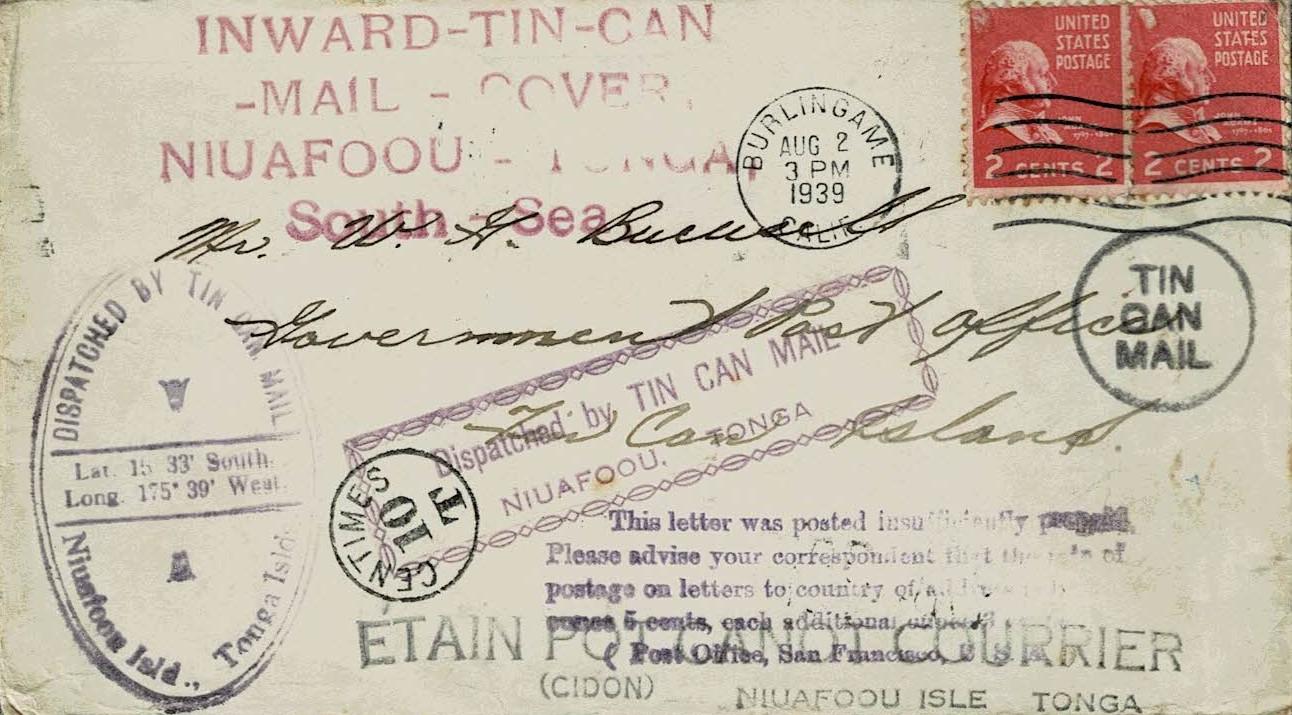 INWARD-TIN-CAN
-MAIL - COVER.
NIUAFOOU - TONGA,
South-Sea
BURLINGAME
AUG 2
3 PM
1939
CALIF
UNITED
STATES
POSTAGE
2 CENTS 2
UNITED
STATES
POSTAGE
2 CENTS 2
Mr. W. H.
Government Post Office
Tin Can Island.
TIN
CAN
MAIL
DISPATCHED BY TIN CAN MAIL
Lat. 15 33' South.
Long. 175° 39' West.
Niuafoou Isld., Tonga Isld.
Dispatched by TIN CAN MAIL
NIUAFOOU, TONGA
CENTIMES
10
T
This letter was posted insufficiently prepaid.
Please advise your correspondent that the rate of
postage on letters to country of
5 cents, each additional
Post Office, San Francisco,
ETAIN POT CANOT COURRIER
(CIDON)
NIUAFOOU ISLE TONGA